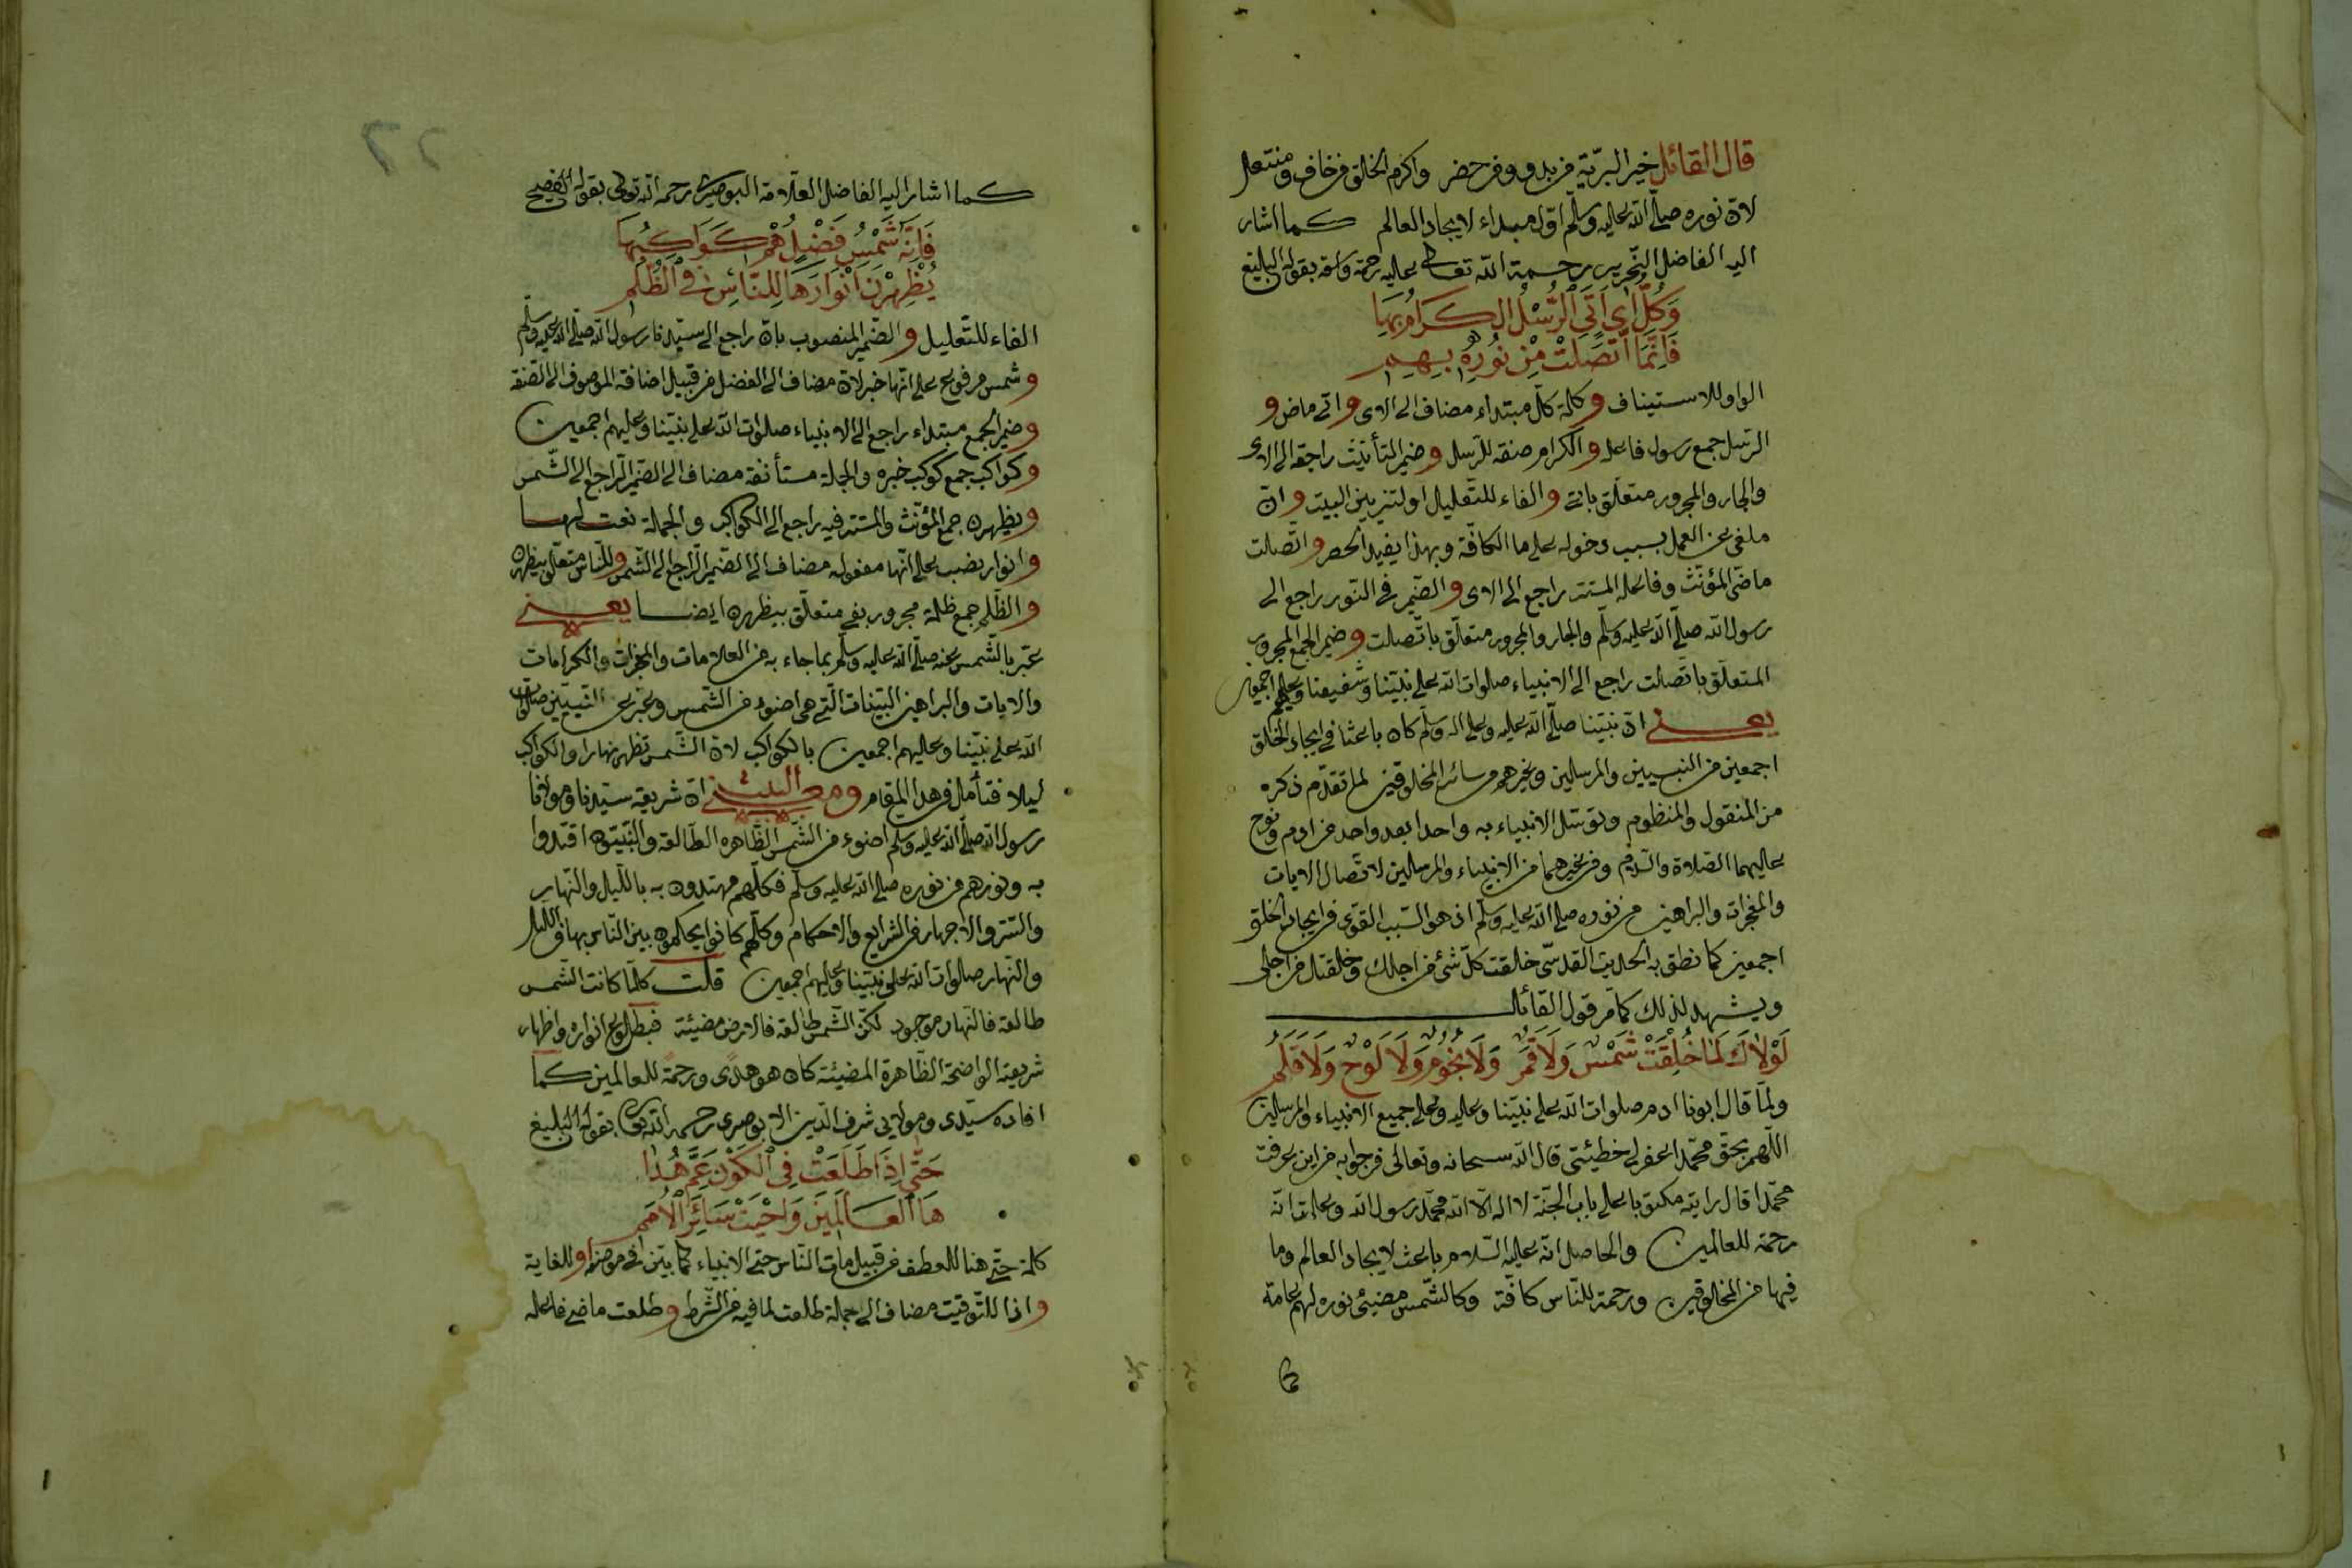 قال القائل خير البريّة من بدو ومن حضر واكرم الخلق من حاف ومنتعل
لانّ نوره صلّى الله عليه وسلّم اوّل مبداء لايجاد العالم كما اشار
اليه الفاضل النّحرير رحمة الله تعالى عليه رحمة واسعة بقوله البليغ
وَكُلُّ اٰيٍ اَتَى الرُّسْلُ الْكِرَامُ بِهَا
فَاِنَّمَا اتَّصَلَتْ مِنْ نُورِهِ بِهِمِ
الواو للاستيناف و كلمة كلّ مبتداء مضاف الى الاى و اتى ماض و
الرسل جمع رسول فاعله و الكرام صفة للرسل و ضمير التأنيث راجعة الى الاى
والجار والمجرور متعلّق باتى و الفاء للتّعليل او لتزيين البيت و انّ
ملغى عن العمل بسبب دخوله على ما الكافّة وبهذا يفيد الحصر و اتّصلت
ماضى المؤنّث وفاعله المستتر راجع الى الاى و الضّمير فى النّور راجع الى
رسول الله صلّى الله عليه وسلّم والجار والمجرور متعلّق باتّصلت و ضمير الجمع المجرور
المتعلّق باتّصلت راجع الى الانبياء صلوات الله على نبيّنا وشفيعنا وعليهم اجمعين
يعنى انّ نبيّنا صلّى الله عليه وعلى اله وسلّم كان باعثا فى ايجاد الخلق
اجمعين من النبيين والمرسلين وغيرهم من سائر المخلوقين لما تقدّم ذكره
من المنقول والمنظوم وتوسّل الانبياء به واحدا بعد واحد من ادم ونوح
عليهما الصّلاة والسّلام ومن غيرهما من الانبياء والمرسلين لاتّصال الايات
والمعجزات والبراهين من نوره صلى الله عليه وسلّم اذ هو السّبب القوىّ فى ايجاد الخلق
اجمعين كما نطق به الحديث القدسىّ خلقت كلّ شئ من اجلك وخلقتك من اجلى
ويشهد لذلك كما مرّ قول القائل
لَوْلَاكَ لَمَا خُلِقَتْ شَمْسٌ وَلَا قَمَرٌ وَلَا نُجُومٌ وَلَا لَوْحٌ وَلَا قَلَمُ
ولمّا قال ابونا ادم صلوات الله على نبيّنا وعليه وعلى جميع الانبياء والمرسلين
اللّهم بحقّ محمّد اغفر لى خطيئتى قال الله سبحانه وتعالى فى جوابه من اين عرفت
محمّدا قال رايته مكتوبا على باب الجنّة لا اله الّا الله محمّد رسول الله وعلمت انّه
رحمة للعالمين والحاصل انّه عليه السّلام باعث لايجاد العالم وما
فيها من المخلوقين ورحمة للنّاس كافّة وكالشّمس مضيئ نوره لهم عامّة
كما
كما اشار اليه الفاضل العلّامة البوصيرى رحمه الله تعالى بقوله الفصيح
فَاِنَّهُ شَمْسُ فَضْلٍ هُمْ كَوَاكِبُهَا
يُظْهِرْنَ اَنْوَارَهَا لِلنَّاسِ فِى الظُّلَمِ
الفاء للتّعليل و الضّمير المنصوب بانّ راجع الى سيّدنا رسول الله صلّى الله عليه وسلّم
و شمس مرفوع على انّها خبر لانّ مضاف الى الفضل من قبيل اضافة الموصوف الى الصّفة
و ضمير الجمع مبتداء راجع الى الانبياء صلوات الله على نبيّنا وعليهم اجمعين
و كواكب جمع كوكب خبره والجملة مستأنفة مضاف الى الضّمير الرّاجع الى الشّمس
و يظهرن جمع المؤنّث والمستتر فيه راجع الى الكواكب والجملة نعت لها
و انوار نصب على انّها مفعوله مضاف الى الضّمير الرّاجع الى الشّمس و للنّاس متعلّق بيظهرن
و الظّلم جمع ظلمة مجرور بفى متعلّق بيظهرن ايضا يعنى
عبّر بالشّمس عنه صلّى الله عليه وسلّم بما جاء به من العلامات والمعجزات والكرامات
والايات والبراهين البيّنات الّتى هى اضوء من الشّمس وعبّر عن النّبيّين صلوات
الله على نبيّنا وعليهم اجمعين بالكواكب لانّ الشّمس تظهر نهارا والكواكب
ليلا فتأمّل فى هذا المقام ومعنى البيت انّ شريعة سيّدنا ومولانا
رسول الله صلّى الله عليه وسلّم اضوء من الشّمس الظّاهره الطّالعة والنّبيّون اقتدوا
به ونورهم من نوره صلى الله عليه وسلّم فكلّهم مهتدون به باللّيل والنّهار
والسّتر والاجهار فى الشّرايع والاحكام وكلّهم كانوا يحكمون بين النّاس بها فى الليل
والنّهار صلوات الله على نبيّنا وعليهم اجمعين قلت كلّما كانت الشّمس
طالعة فالنّهار موجود لكنّ الشّمس طالعة فالارض مضيئة فبطلوع انواره واظهار
شريعته الواضحة الظّاهرة المضيئة كان هو هدًى ورحمة للعالمين كما
افاده سيّدى ومولايى شرف الدّين الابوصيرى رحمه الله تعالى بقوله البليغ
حَتّٰى اِذَا طَلَعَتْ فِى الْكَوْنِ عَمَّ هُدَا
هَا الْعَالَمِينَ وَاَحْيَتْ سَائِرَ الْاُمَمِ
كلمة حتّى هنا للعطف من قبيل مات النّاس حتى الانبياء كما بيّن فى موضعه او للغاية
و اذا للتّوقيت مضاف الى جملة طلعت لما فيه من الشّرط و طلعت ماضى فاعله